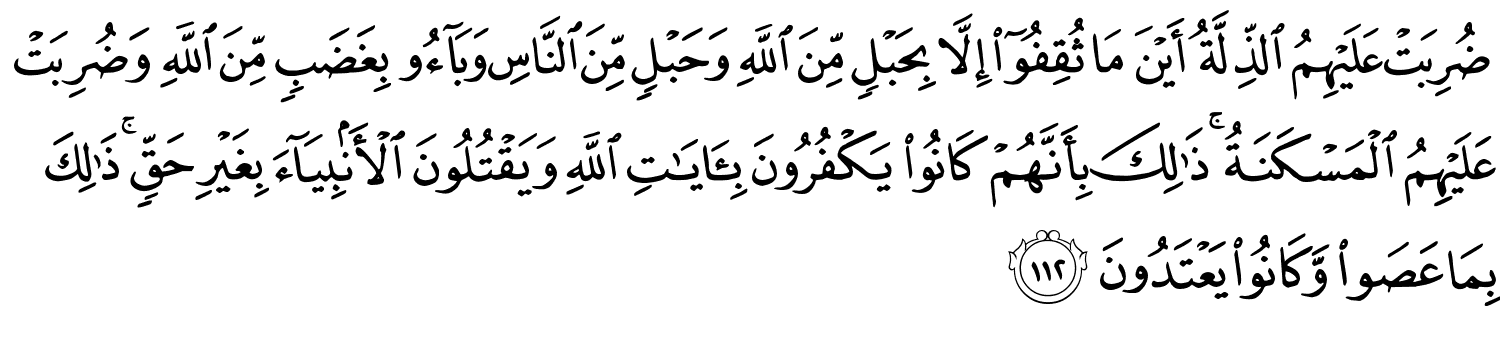 ضُرِبَتۡ عَلَيۡهِمُ ٱلذِّلَّةُ أَيۡنَ مَا ثُقِفُوٓاْ إِلَّا بِحَبۡلٖ مِّنَ ٱللَّهِ وَحَبۡلٖ مِّنَ ٱلنَّاسِ وَبَآءُو بِغَضَبٖ مِّنَ ٱللَّهِ وَضُرِبَتۡ
عَلَيۡهِمُ ٱلۡمَسۡكَنَةُۚ ذَٰلِكَ بِأَنَّهُمۡ كَانُواْ يَكۡفُرُونَ بِـَٔايَٰتِ ٱللَّهِ وَيَقۡتُلُونَ ٱلۡأَنۢبِيَآءَ بِغَيۡرِ حَقّٖۚ ذَٰلِكَ
بِمَا عَصَواْ وَّكَانُواْ يَعۡتَدُونَ ١١٢